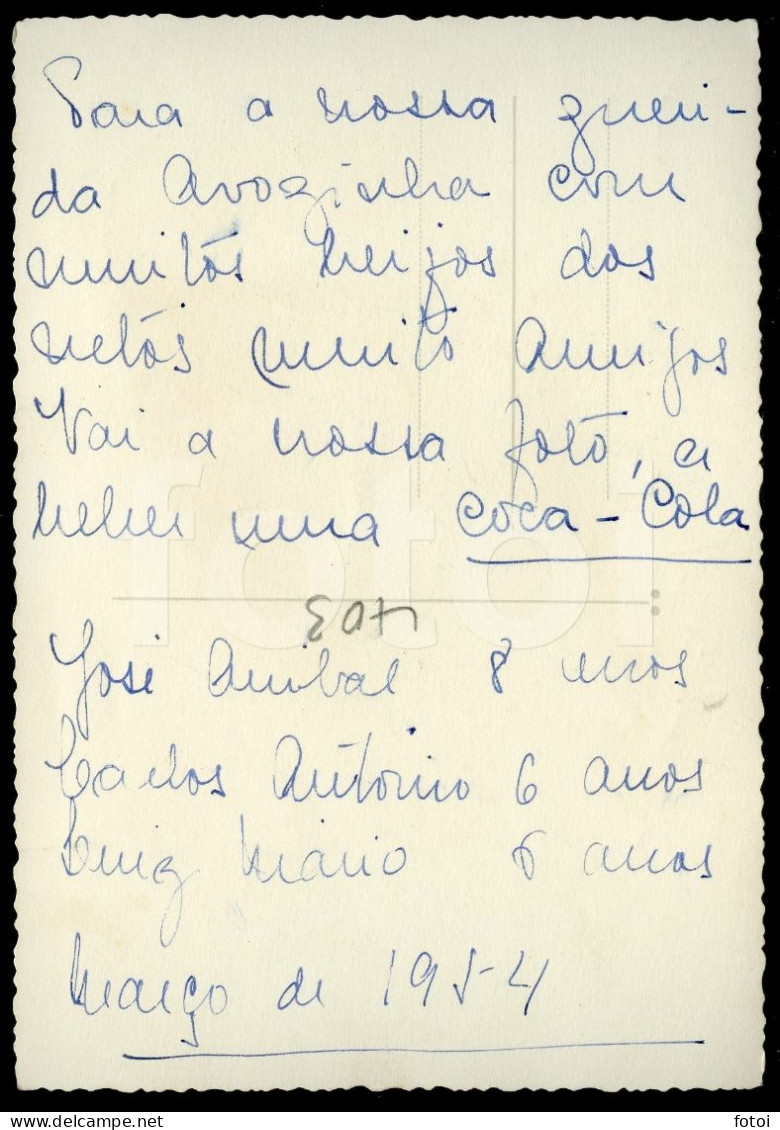 Para a nossa queri-
da Avozinha com
muitos beijos dos
netos muito Amigos
Vai a nossa foto, a
beber uma Coca-Cola
José Anibal 8 anos
Carlos António 6 anos
Luiz Mário anos
Março de 1954
fotoi